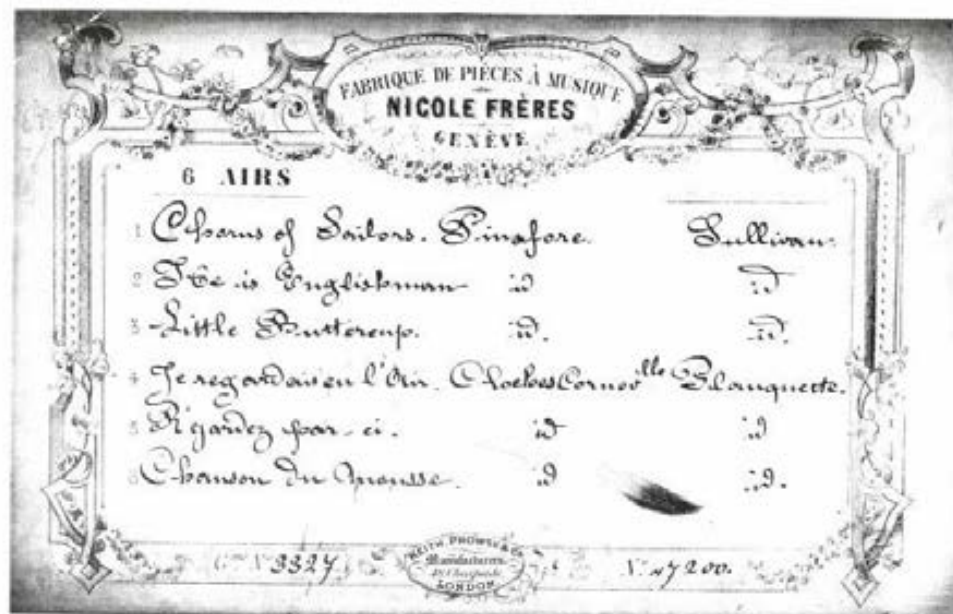 FABRIQUE DE PIÈCES À MUSIQUE
NICOLE FRÈRES
GENÈVE
6 AIRS
1 Chorus of Sailors. Pinafore. Sullivan.
2 He is Englishman id id
3 Little Buttercup. id. id.
4 Je regardais en l'Air. Cloches Cornevlle Planquette.
5 R'gardez par-ci. id id
6 Chanson du Mousse. id id.
Gme No 3327
KEITH PROWSE & Co
Manufacturers
48 Cheapside
LONDON
No 47200.